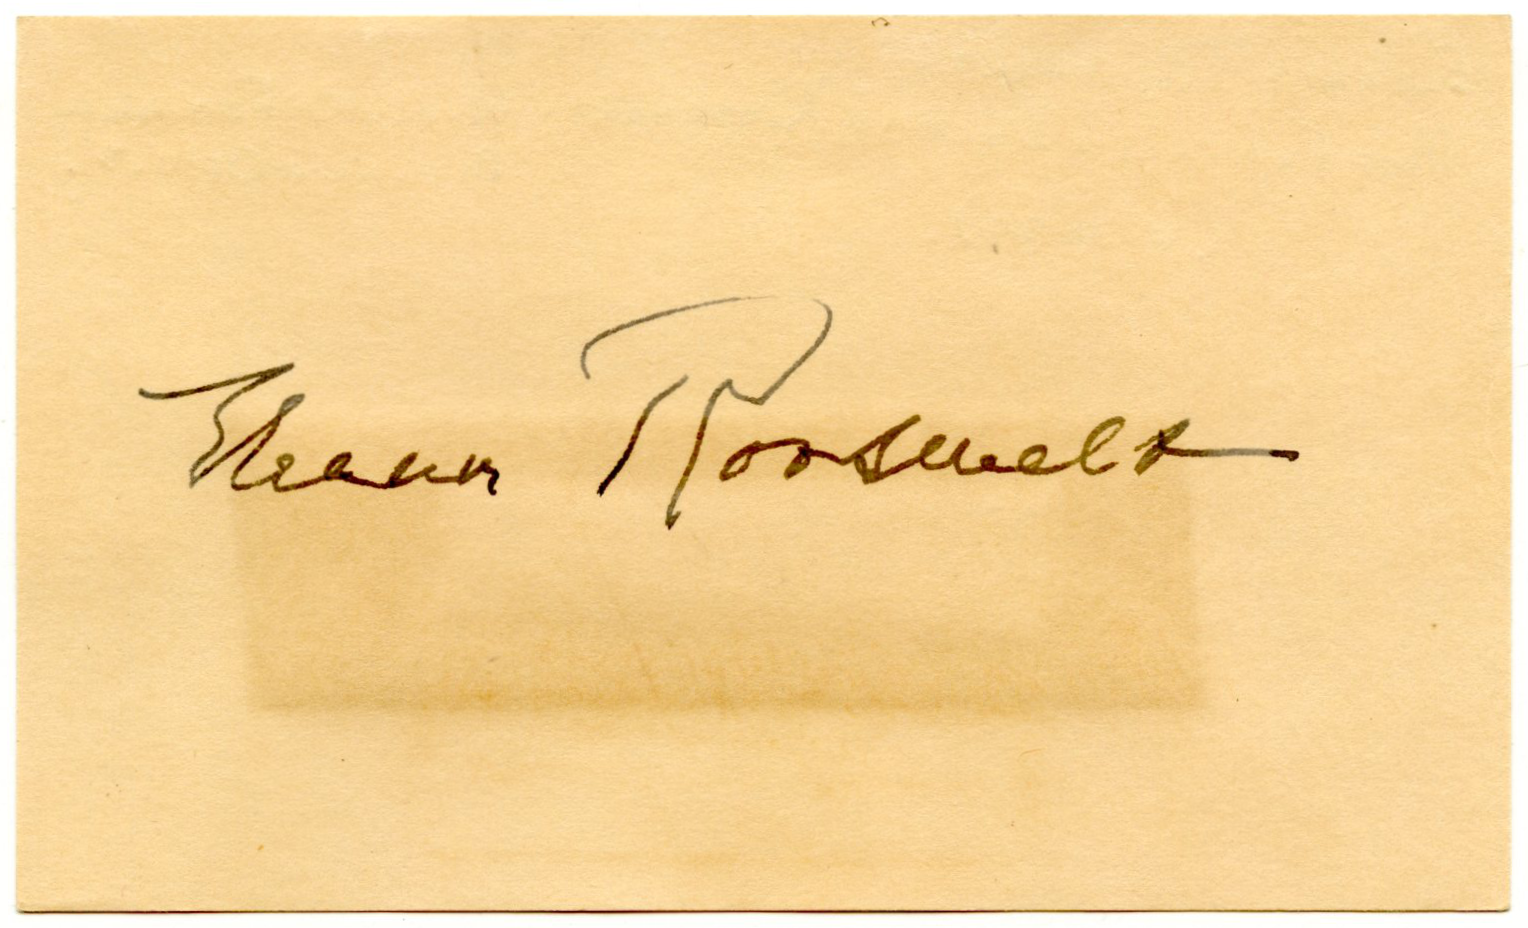 Eleanor Roosevelt